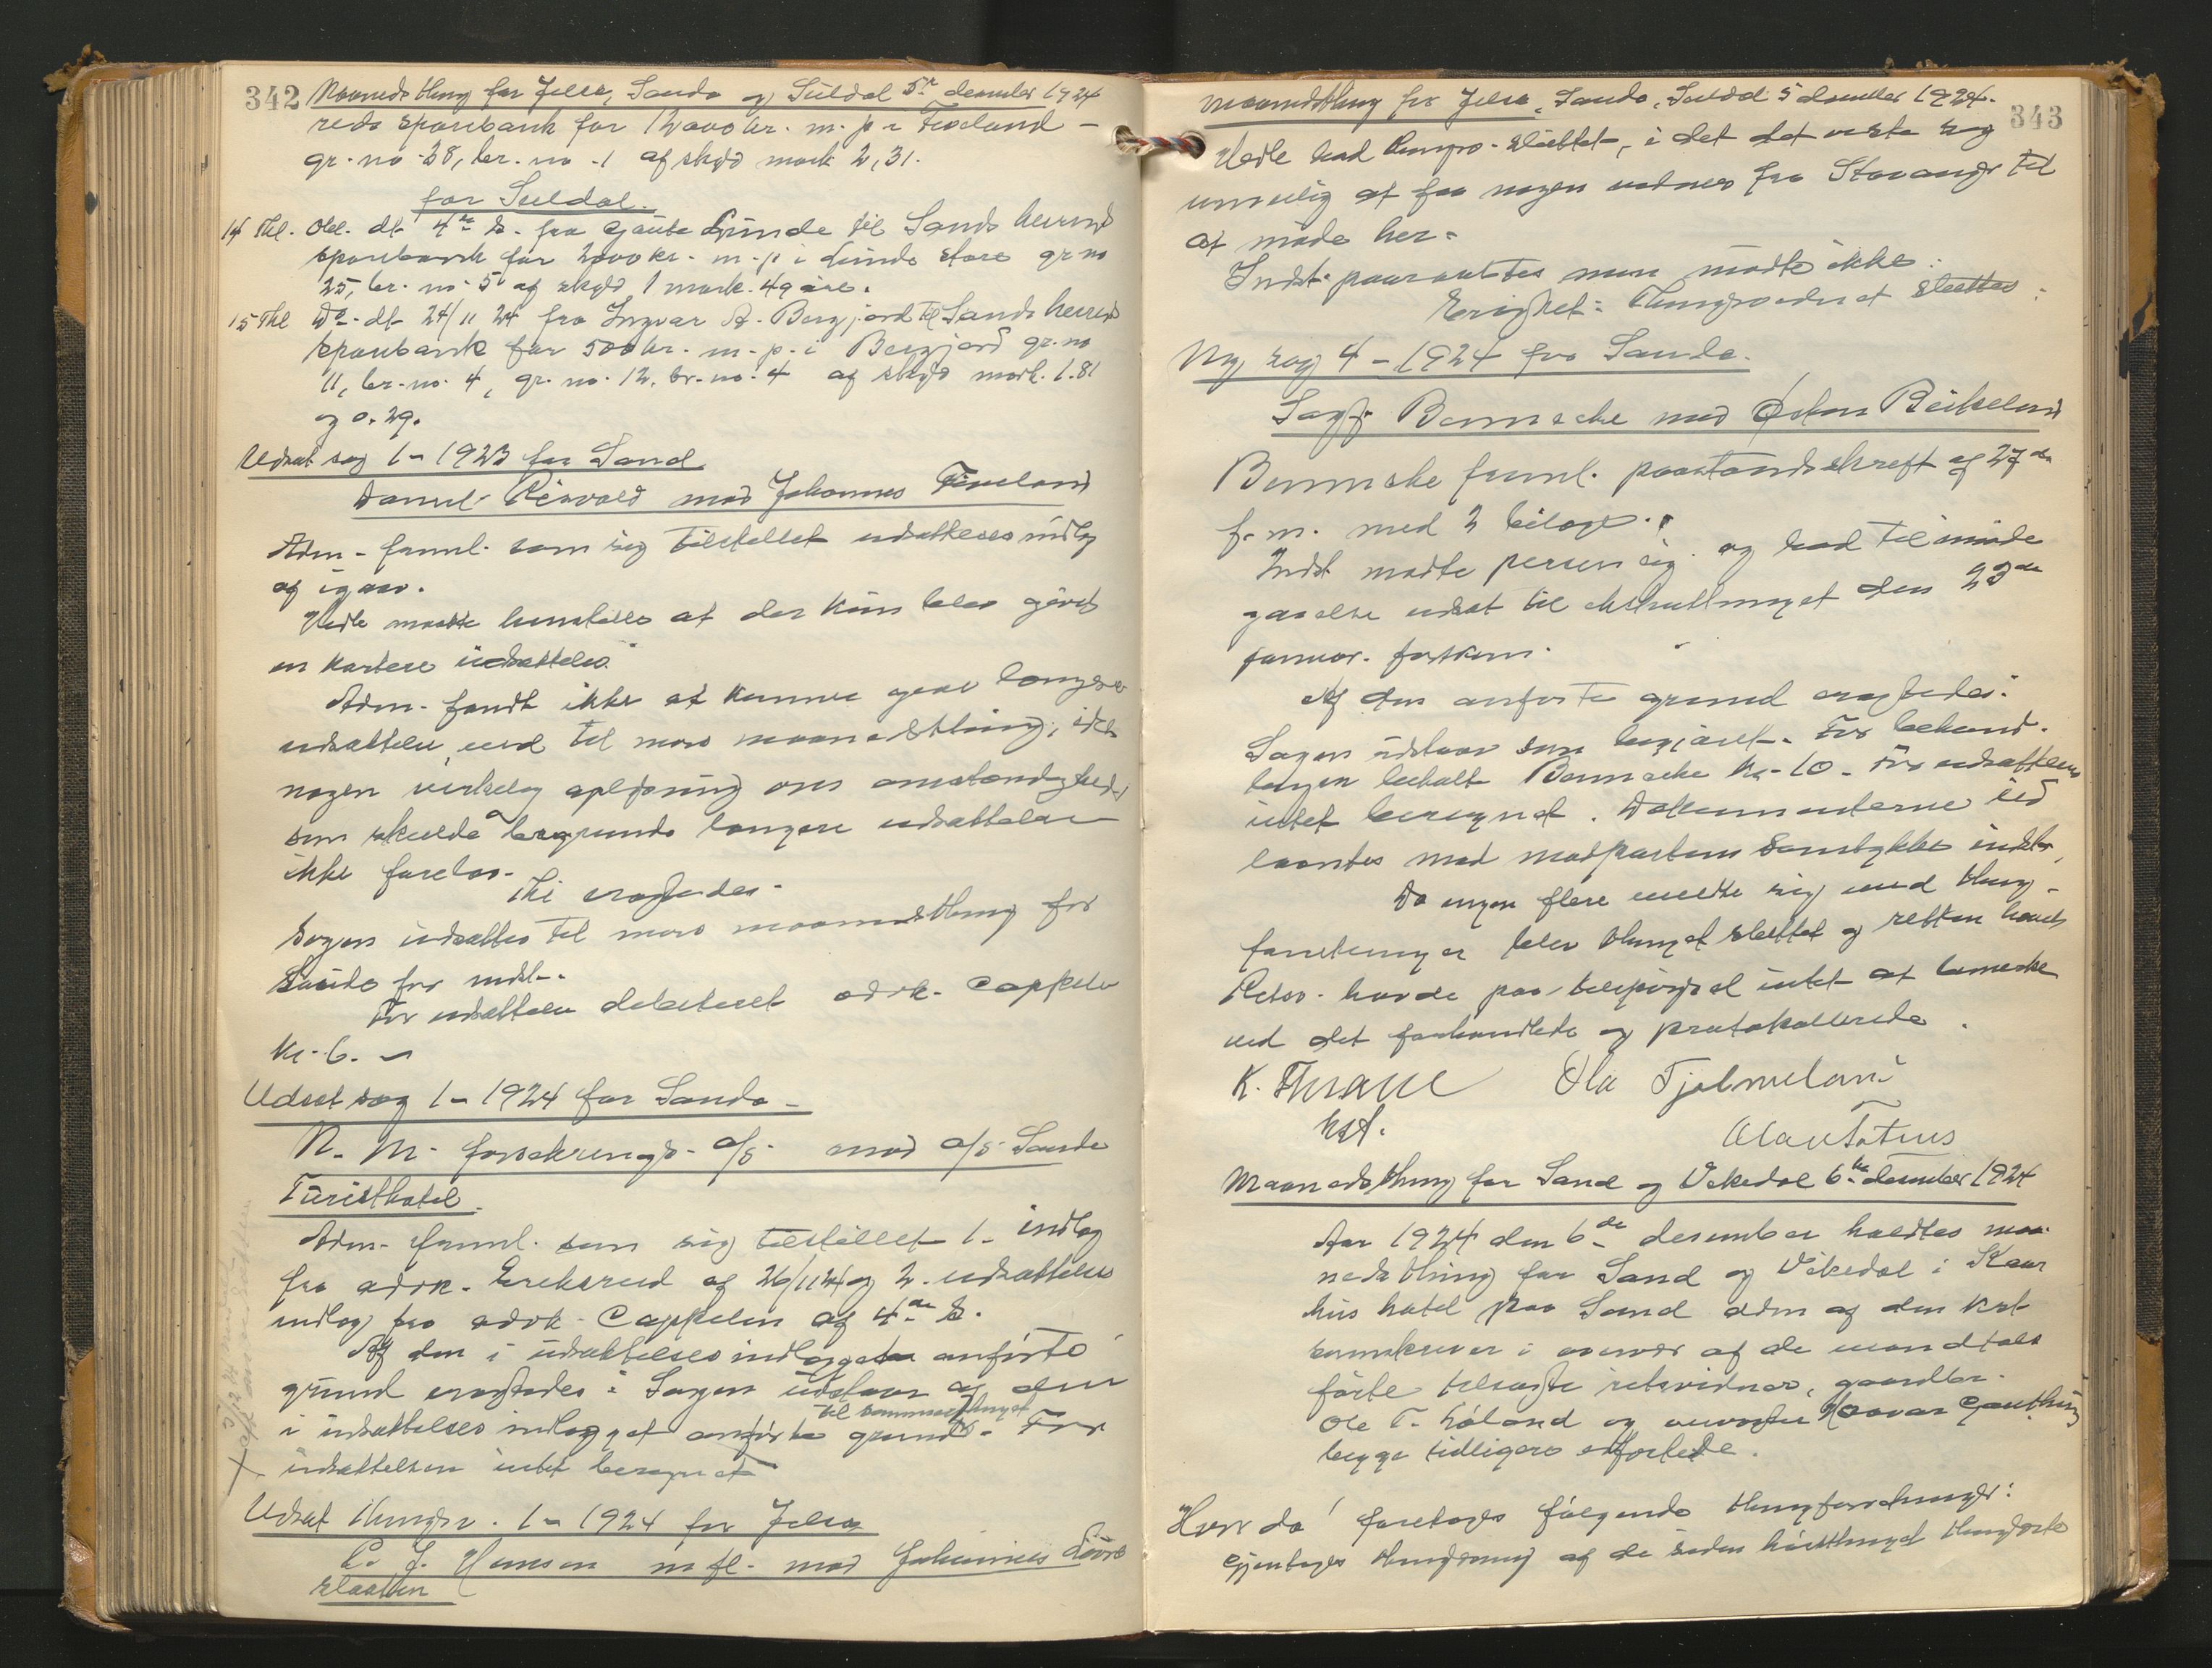 342 Maanedsthing for Jelse, Sauda og Suldal 5te desember 1924
reds sparebank for 12000 kr. m. p. i Fiveland -
gr. no 38, br. no. 1 af skyld mark 2,31.
for Suldal.
14 Thl. Obl. dt 4de ds. fra Gaute Lunde til Sands herreds
sparebank for 2000 kr. m. p. i Lunde store gr no
25, br. no. 5 af skyld 1 mark 49 øre.
15 Thl Do dt 24/11 24 fra Ingvar A. Bergjord til Sands herreds
sparebank for 500 kr. m. p. i Bergjord gr. no
11, br. no. 4, gr. no. 12, br. no. 4 af skyld mark 1.81
og 0.29.
Udsat sag 1 - 1923 for Sand
Daniel Risvold mod Johannes Fiveland
Adm. freml. som sig tilstillet udsættelsesindlæg
af igaar.
Vedk maatte henstille at der kun blev givet
en kortere udsættelse.
Adm. fandt ikke at kunne give længere
udsættelse end til mars maanedsthing, idet
nogen virkelig oplysning om omstændigheder
som skulde begrunde længere udsættelse
ikke forelaa.
Thi eragtedes.
Sagen udsættes til mars maanedsthing for
Sauda for indst.
For udsættelsen debiteret adv. Cappelen
Kr. 6. -
Udsat sag 1 - 1924 for Sauda -
N. M. forsikrings. a/s. mod a/s Sauda
Turisthotel.
Adm. freml. som sig tilstillet 1. indlæg
fra adv. Eriksrud af 26/11 24 og 2. udsættelses
indlæg fra advk. Cappelen af 4de ds.
Af den i udsættelsesindlægget anførte
grund eragtedes: Sagen udstaar af den
til sommerthinget
i udsættelses indlægget anførte grund. For
udsættelsen intet beregnet
Udsat thingsv. 1 - 1924 for Jelsa
C. J. Hansen m fl. mod Johannes
slaatten
Maanedsthing for Jelsa, Sauda, Suldal 5 desember 1924. 343
Vedk bad thingsv. sluttet, i det det viste sig
umulig at faa nogen vidner fra Stavanger til
at møde her.
Indst. paaraabtes men mødte ikke.
Eragtet: Thingsvidnet sluttes.
Ny sag 4 - 1924 for Sauda.
Sagf. Bennecke mod Østen Birkeland
Bennecke freml. paastandsskrift af 27de
f. m. med 2 bilage.
Indst mødte personlig og bad tilimøde
gaaelse udsat til ekstrathinget den 23de
januar. førstkom.
Af den anførte grund eragtedes:
Sagen udstaar som begjæret. For behand-
lingen betalt Bennecke kr. 10. For udsættelsen
intet beregnet. Dokumenterne ud
laantes med modpartens samtykke indst.
Da ingen flere meldte sig med thing-
forretninger blev thinget sluttet og retten hævet
Retsv. havde paa tilspørgsel intet at bemerke
ved det forhandlede og protokollerede.
K. Thrane Ola Tjelmeland
kst. Olav Totus
Maanedsthing for Sand og Vikedal 6te desember 1924
Aar 1924 den 6te desember holdtes maa-
nedsthing for Sand og Vikedal i Kaar
hus hotel paa Sand adm af den kst
sorenskriver i overvær af de mandtals
førte tilsagte retsvidner, gaardbr.
Ole T. Løland og Haavar Gauthun
begge tidligere edfæstede.
Hvor da! foretoges følgende thingforretninger:
Gjentoges thinglæsning af de siden høstthinget thinglæste